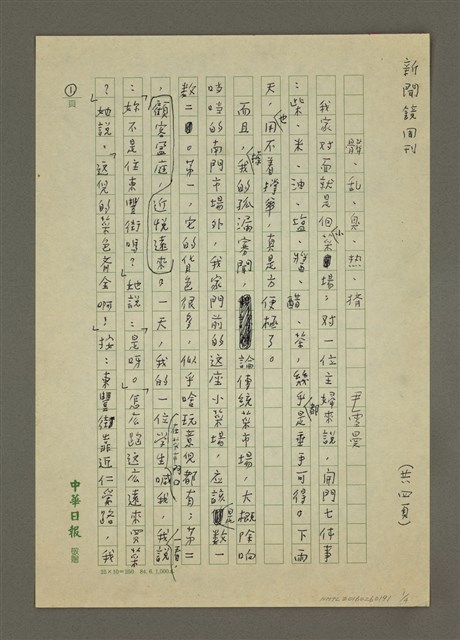 新聞鏡周刊
(共四頁)
髒、亂、臭、熱、擠
尹雪曼
我家對面就是個小菜場。對一位主婦來說,開門七件事
:柴、米、油、塩、醬、醋、茶,幾乎都是垂手可得。下雨
天,也用不着撐傘,真是方便極了。
而且,我的孤漏寡聞,論傳統菜市場,大概除响
噹噹的南門市場外,我家門前的這座小菜場,應該是數一
數二。第一,它的貨色很多,似乎啥玩意兒都有;第二
,顧客盈庭,近悅遠來。一天,我的一位學生喊我,我說
:妳不是住東豐街嗎?」她說:「是呀。」「怎么跑这么遠來買菜
?」她說:「这兒的菜色齊全啊!」按:東豐街靠近仁愛路,我
①頁
中華日報
稿紙
25×10=250 84.6.1,000本
1/6